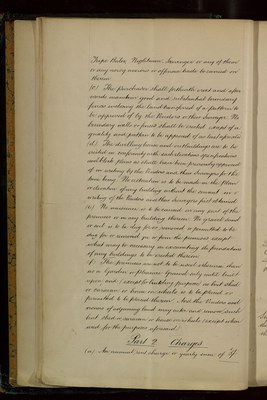 or any nasty noisome or offensive trade be carried on
thereon
(c) The Purchaser shall forthwith erect and after-
wards maintain good and substantial boundary
fences enclosing the land transferred of a pattern to
be approved of by the Vendors or their Surveyor. No
boundary walls or fences shall be erected except of a
quality and pattern to be approved of as last aforesaid
(d) The dwelling house and outbuildings are to be
erected in conformity with such elevations specifications
and block plans as shall have been previously approved
of in writing by the Vendors and their Surveyor for the
time being. No alteration is to be made in the plan or
elevation of any building without the consent in
writing of the Vendors and their Surveyor first obtained
premises or in any building thereon. No gravel sand
or soil is to be dug for or removed or permitted to be
dug for or removed from the premises except
what may be necessary in excavating the foundations
of any buildings to be erected thereon
(f) The premises are not to be used otherwise than
as a Garden or Pleasure Ground only until built
upon and (except for building purposes) no hut shed
or caravan or house on wheels is to be placed or
permitted to be placed thereon. And the Vendors and
owners of adjoining land may enter and remove such
hut shed or caravan or house on wheels (except when
used for the purposes aforesaid)
Part 2 Charges
(a) An annual rent charge or yearly sum of